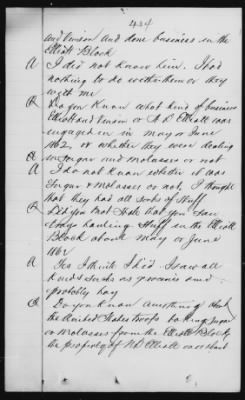 434
and Vinson and done business in the
Elliott Block
A I did not know him. I had
nothing to do with them or they
with me
Q Do you know what kind of business
Elliott and Vinson or N. R. Elliott was
engaged in in may or June
1862, or whether they were dealing
in Sugar and molasses or not
A I do not know whether it was
Sugar & molasses or not, I thought
that they had all sorts of Stuff
Q Did you not state that you saw
drays hauling Stuff in the Elliott
Block about may or June
1862
A Yes I think I did I saw all
kinds such as groceries and
probably hay
Q Do you know anything about
the United States troops taking Sugar
or molasses from the Elliott Block,
the property of N. R. Elliott